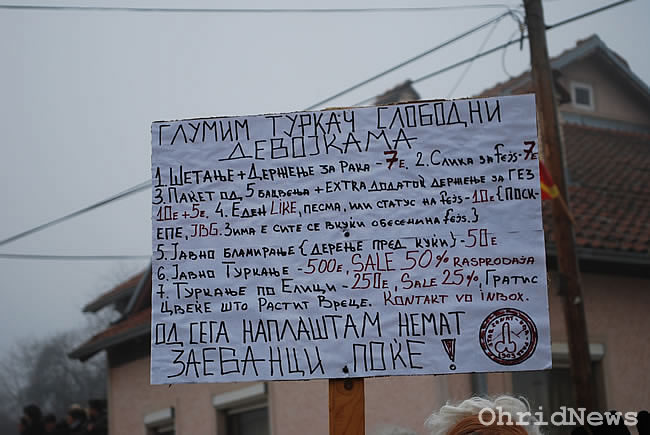 ГЛУМИМ ТУРКАЧ СЛОБОДНИ
ДЕВОЈКАМА
1. ШЕТАЊЕ + ДЕРЖЕЊЕ ЗА РАКА - 7е. 2. СЛИКА ЗА fejs-7е
3. ПАКЕТ ОД 5 БАКВЕЊА + EXTRA ДОДАТОК ДЕРЖЕЊЕ ЗА ГЕЗ
10е + 5е, 4. ЕДЕН LIKE, ПЕСМА, ИЛИ СТАТУС НА fejs-10е {ПОСК-
ЕПЕ, JBG. ЗИМА Е СИТЕ СЕ ВНУКИ ОБЕСЕНИ НА fejs.}
5. ЈАВНО БЛАМИРАЊЕ {ДЕРЕЊЕ ПРЕД КУЌИ} -50е
6. ЈАВНО ТУРКАЊЕ -500е, SALE 50% RASPRODAJA
7. ТУРКАЊЕ ПО ЕЛИЦИ -250е, SALE 25%, ГРАТИС
ЦВЕЌЕ ШТО РАСТИТ ВРЕЦЕ. KONTAKT VO INBOX.
ОД СЕГА НАПЛАШТАМ НЕМАТ
ЗАЕВАНЦИ ПОЌЕ!
OhridNews